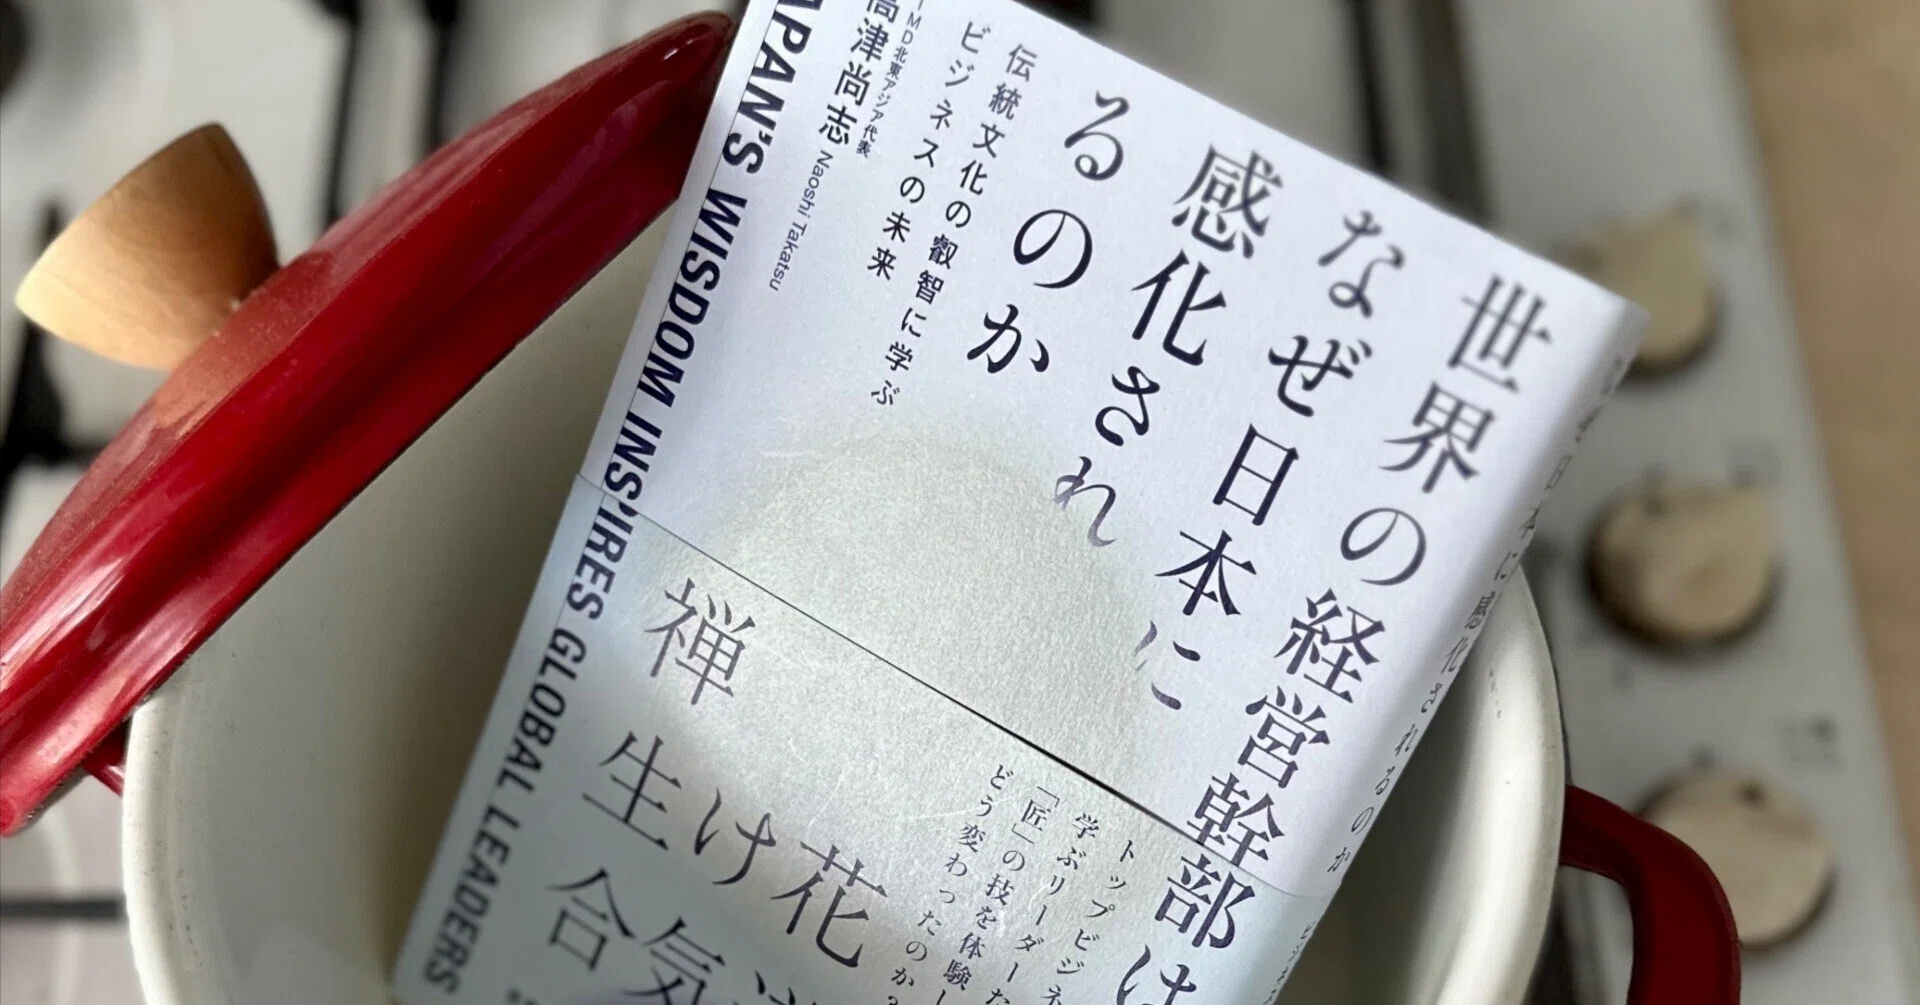 世界の経営幹部は
なぜ日本に
感化され
るのか
伝統文化の叡智に学ぶ
ビジネスの未来
IMD北東アジア代表
高津尚志 Naoshi Takatsu
APAN'S WISDOM INSPIRES GLOBAL LEADERS
禅
生け花
合気
トップビジネ
学ぶリーダーた
「匠」の技を体験し
どう変わったのか?
日本に感化されるのか